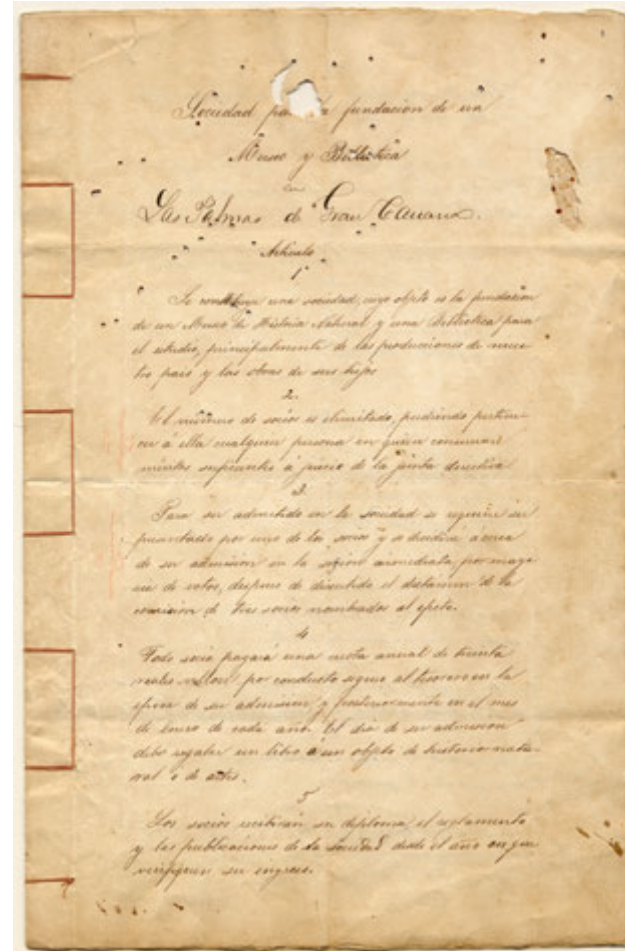 Sociedad para la fundacion de un
Museo y Biblioteca
en
Las Palmas de Gran Canaria.
Artículo
1
Se constituye una sociedad, cuyo objeto es la fundacion
de un Museo de Historia Natural y una Biblioteca para
el estudio, principalmente de las producciones de nues
tro pais y las obras de sus hijos
2.
El número de socios es ilimitado, pudiendo pertene-
cer á ella cualquier persona en quien concurran
suficientes á juicio de la junta directiva
3.
Para ser admitido en la sociedad se requiere ser
presentado por uno de los socios y se decidirá acerca
de su admision en la sesion inmediata, por mayo
ria de votos, despues de discutido el dictamen de la
comision de tres socios nombrados al efecto.
4
Todo socio pagará una cuota anual de treinta
reales vellon por conducto seguro al tesorero en la
época de su admision y posteriormente en el mes
de Enero de cada año. El dia de su admision
debe regalar un libro ó un objeto de historia natu-
ral ó de artes.
5
Los socios recibirán un diploma, el reglamento
y las publicaciones de la sociedad desde el año en que
verifiquen su ingreso.